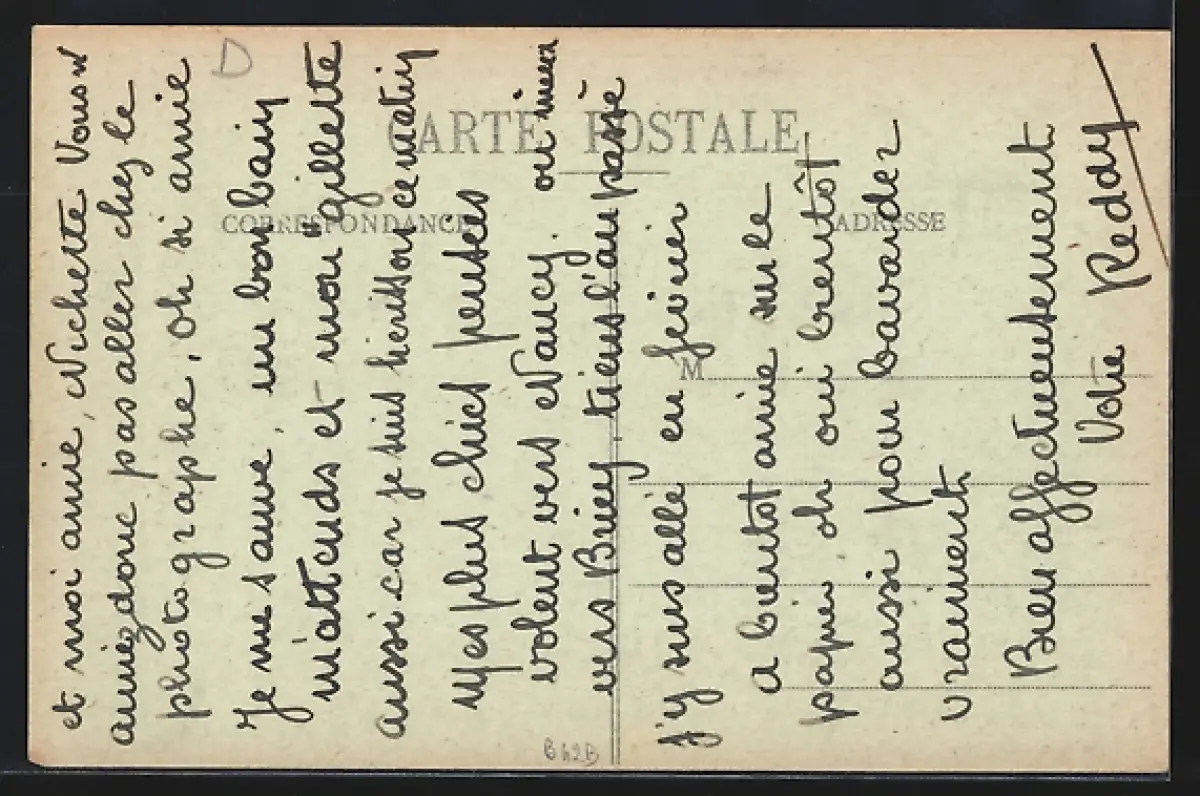 CARTE POSTALE
CORRESPONDANCE
ADRESSE
M
et moi amie, Nichette Vous n'
auriez donc pas aller chez le
photographe, oh si amie
Je me sauve, un bon bain
m'attends et mon "gillette
aussi car je suis hérisson ce matin
Mes plus chics pensées
volent vers Nancy. ou mieux
vers Briey tiens l'an passé
J'y suis allé en février
a bientot amie sur le
papier, oh oui bientôt
aussi pour bavarder
vraiment
Bien affectueusement
Votre Péday
D
B42B